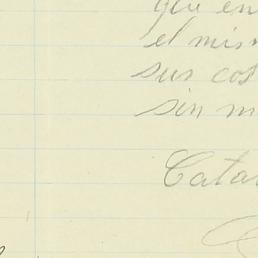 que en
el mism
sus cos
sin m
Cata